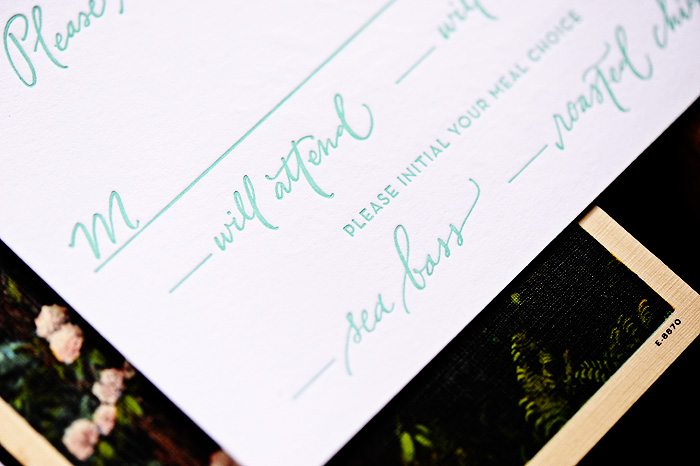 Please
M
will attend
PLEASE INITIAL YOUR MEAL CHOICE
sea bass roasted
E-8870